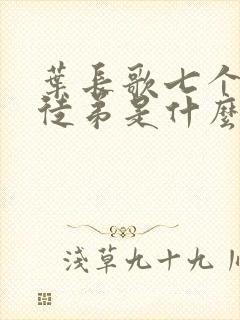 葉長歌七个
徒弟是什麼
淺草九十九